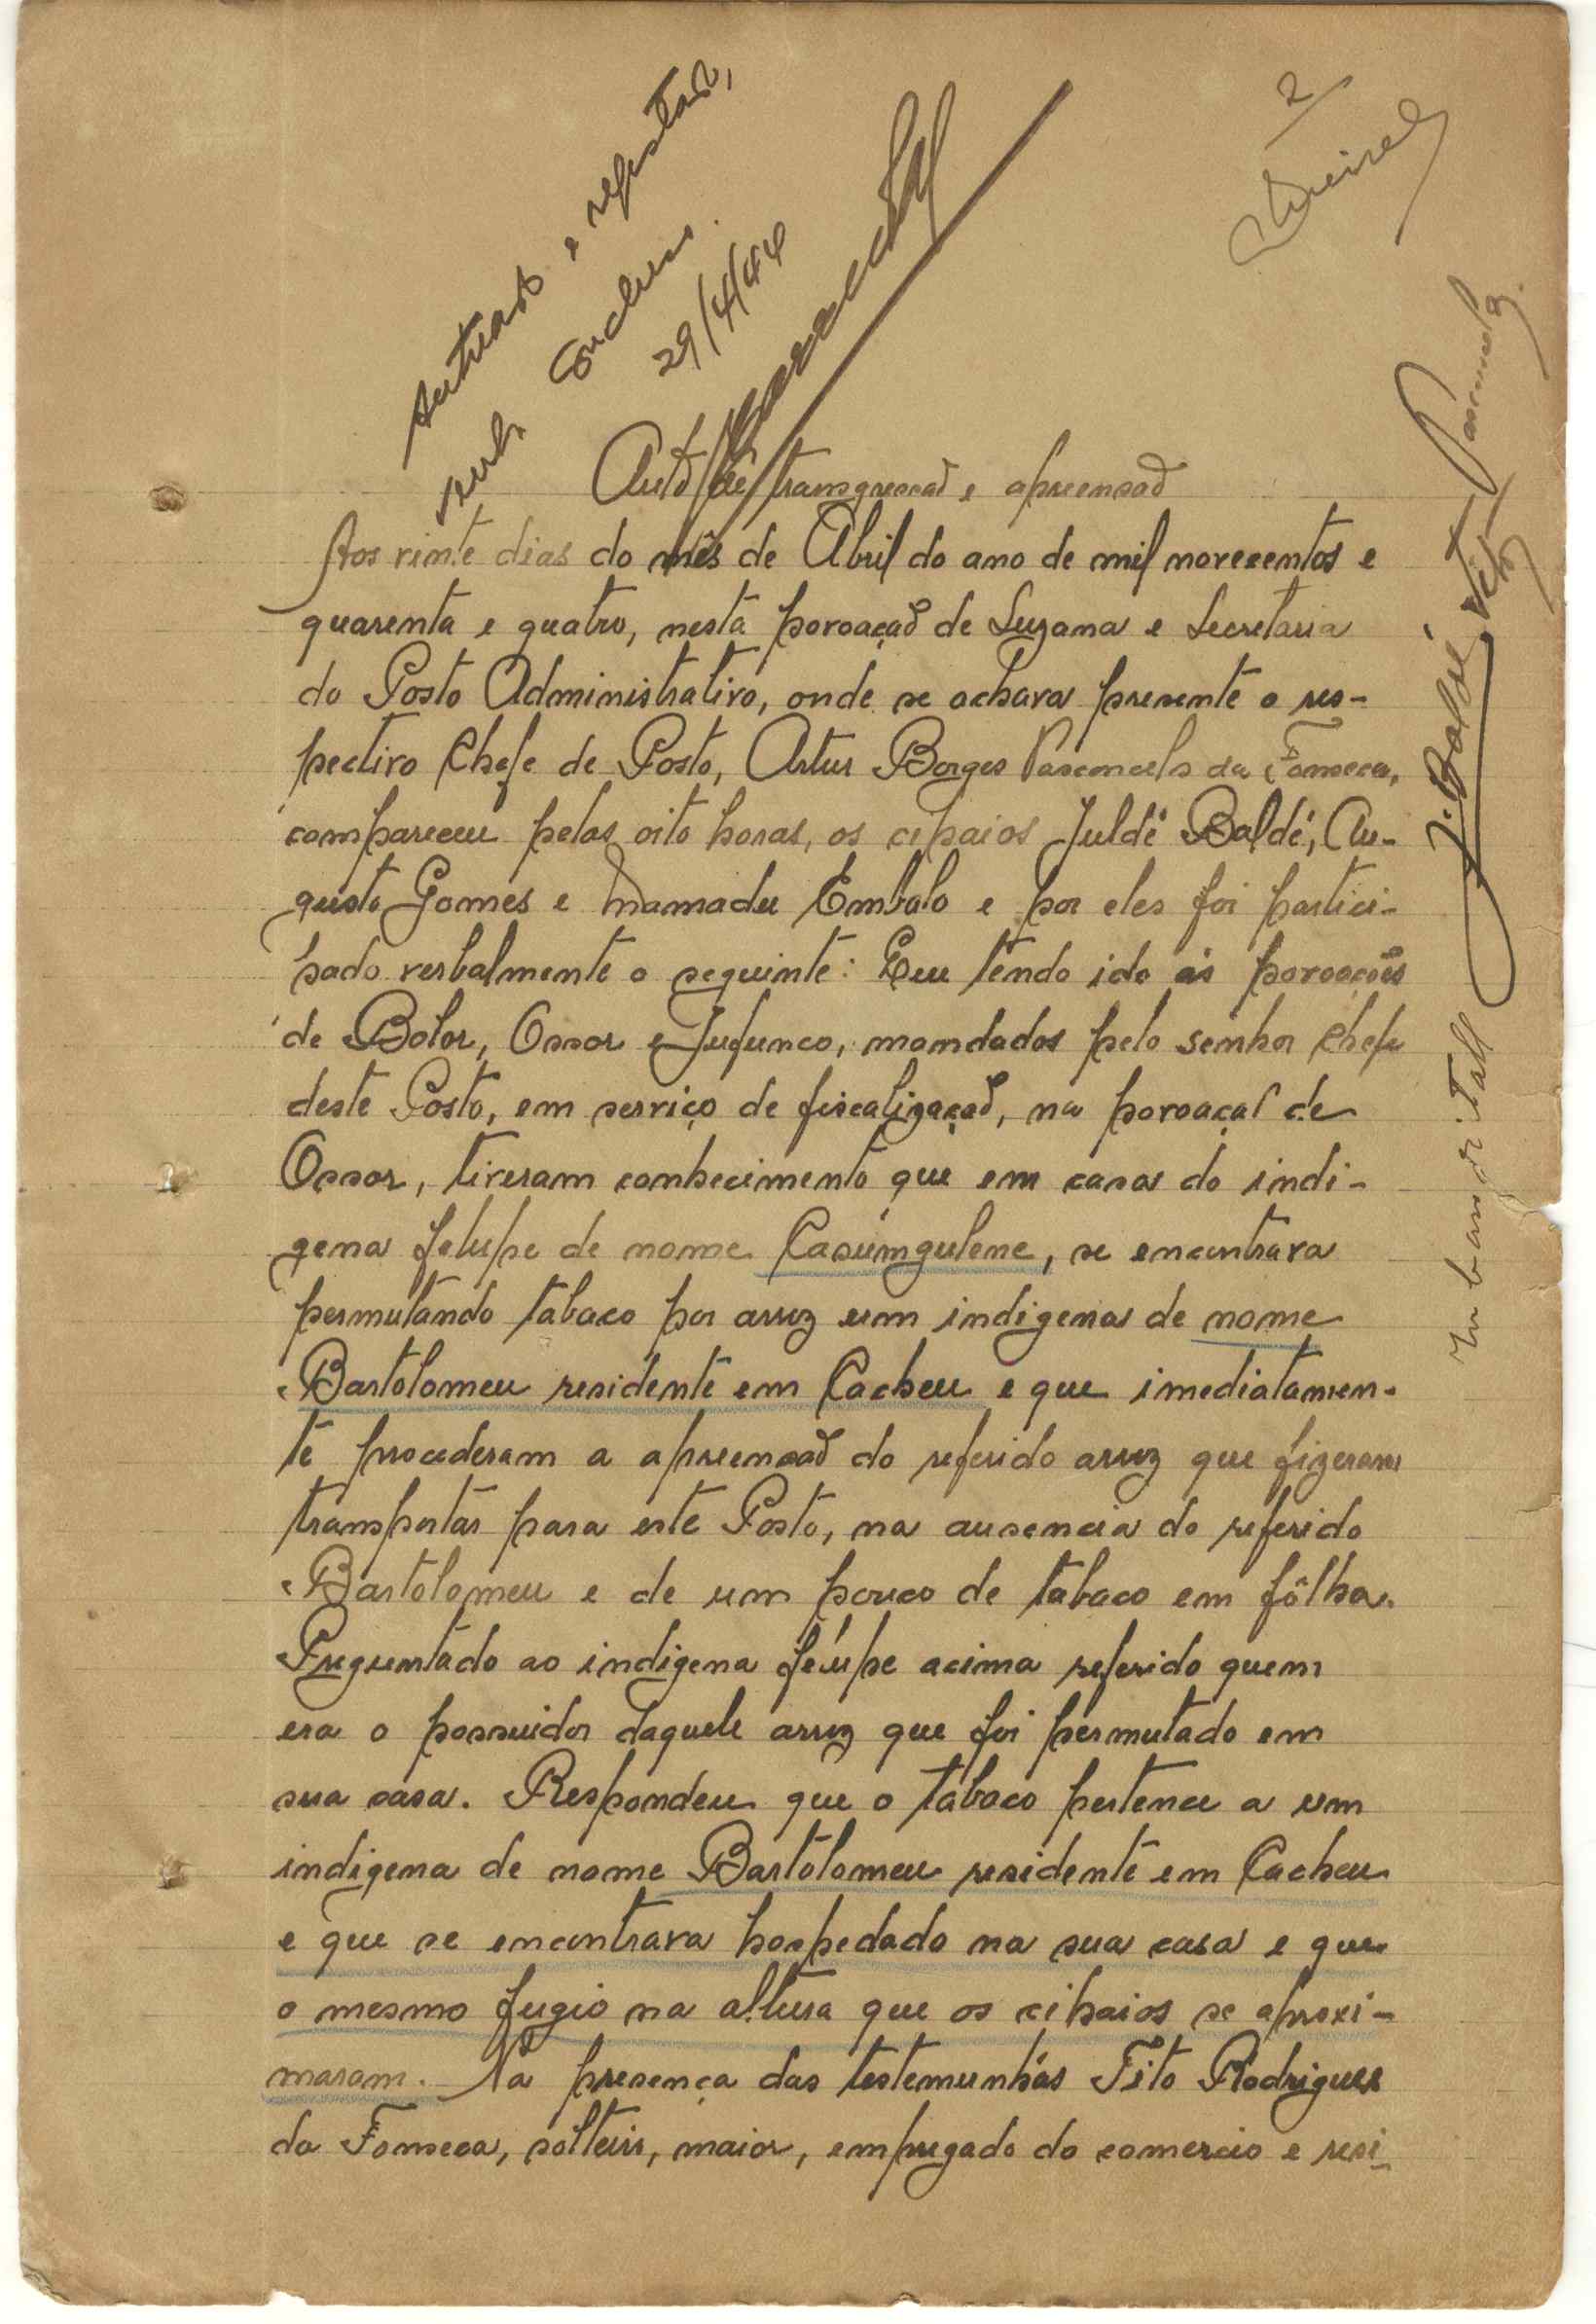 2
Autuado e registado,
conclusos.
29/4/44
Auto de transgressão e apreensão
Aos vinte dias do mês de Abril do ano de mil novecentos e
quarenta e quatro, nesta povoação de Suzana e Secretaria
do Posto Administrativo, onde se achava presente o res-
pectivo Chefe de Posto, Artur Borges Vasconcelos da Fonseca,
compareceu pelas oito horas, os cipaios Juldé Baldé, Au-
gusto Gomes e Mamadu Embalo e por eles foi partici-
pado verbalmente o seguinte: Que tendo ido ás povoações
de Bolor, Ossor e Jufunco, mandados pelo senhor Chefe
deste Posto, em serviço de fiscalização, na povoação de
Ossor, tiveram conhecimento que em casa do indi-
gena felupe de nome Casúmgulene, se encontrava
permutando tabaco por arroz um indigena de nome
Bartolomeu residente em Cacheu e que imediatamen-
te procederam a apreensão do referido arroz que fizeram
transportar para este Posto, na ausencia do referido
Bartolomeu e de um pouco de tabaco em fôlha.
Preguntado ao indigena felupe acima referido quem
era o possuidor daquele arroz que foi permutado em
sua casa. Respondeu que o tabaco pertence a um
indigena de nome Bartolomeu residente em Cacheu
e que se encontrava hospedado na sua casa e que
o mesmo fugio na altura que os cipaios se aproxi-
maram. Na presença das testemunhas Tito Rodrigues
da Fonseca, solteiro, maior, empregado do comercio e resi-